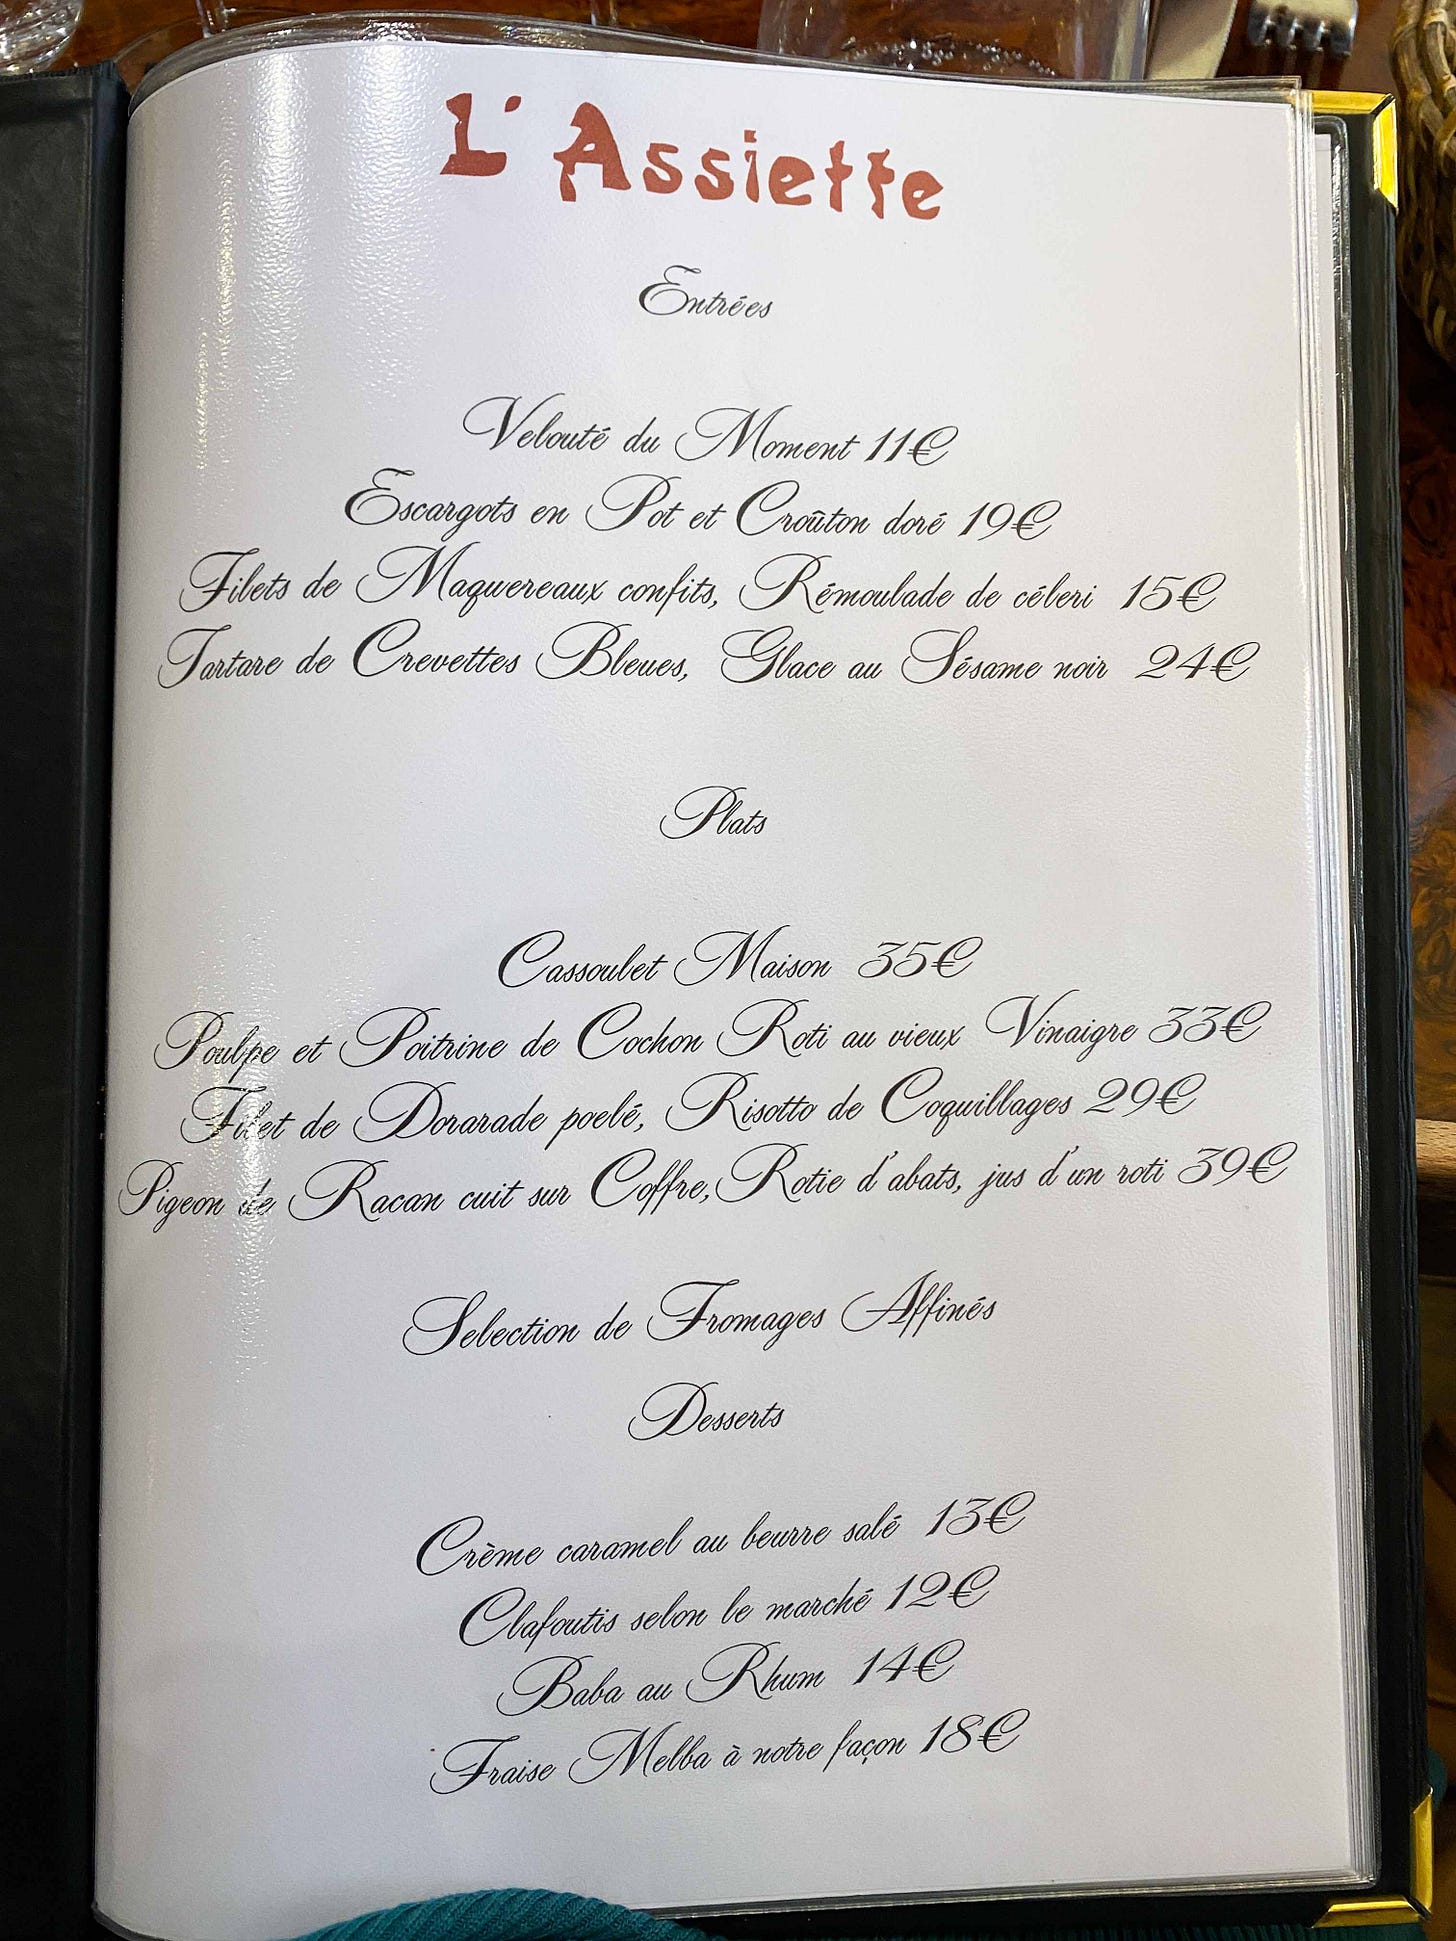 L'Assiette
Entrées
Velouté du Moment 11€
Escargots en Pot et Croûton doré 19€
Filets de Maqwereaux confits, Rémoulade de céleri 15€
Tartare de Crevettes Bleues, Glace au Sésame noir 24€
Plats
Cassoulet Maison 35€
Poulpe et Poitrine de Cochon Roti au vieux Vinaigre 33€
Filet de Dorarade poelé, Risotto de Coquillages 29€
Pigeon de Racan cuit sur Coffre, Rotie d'abats, jus d'un roti 39€
Selection de Fromages Affinés
Desserts
Crème caramel au beurre salé 13€
Clafoutis selon le marché 12€
Baba au Rhum 14€
Fraise Melba à notre façon 18€